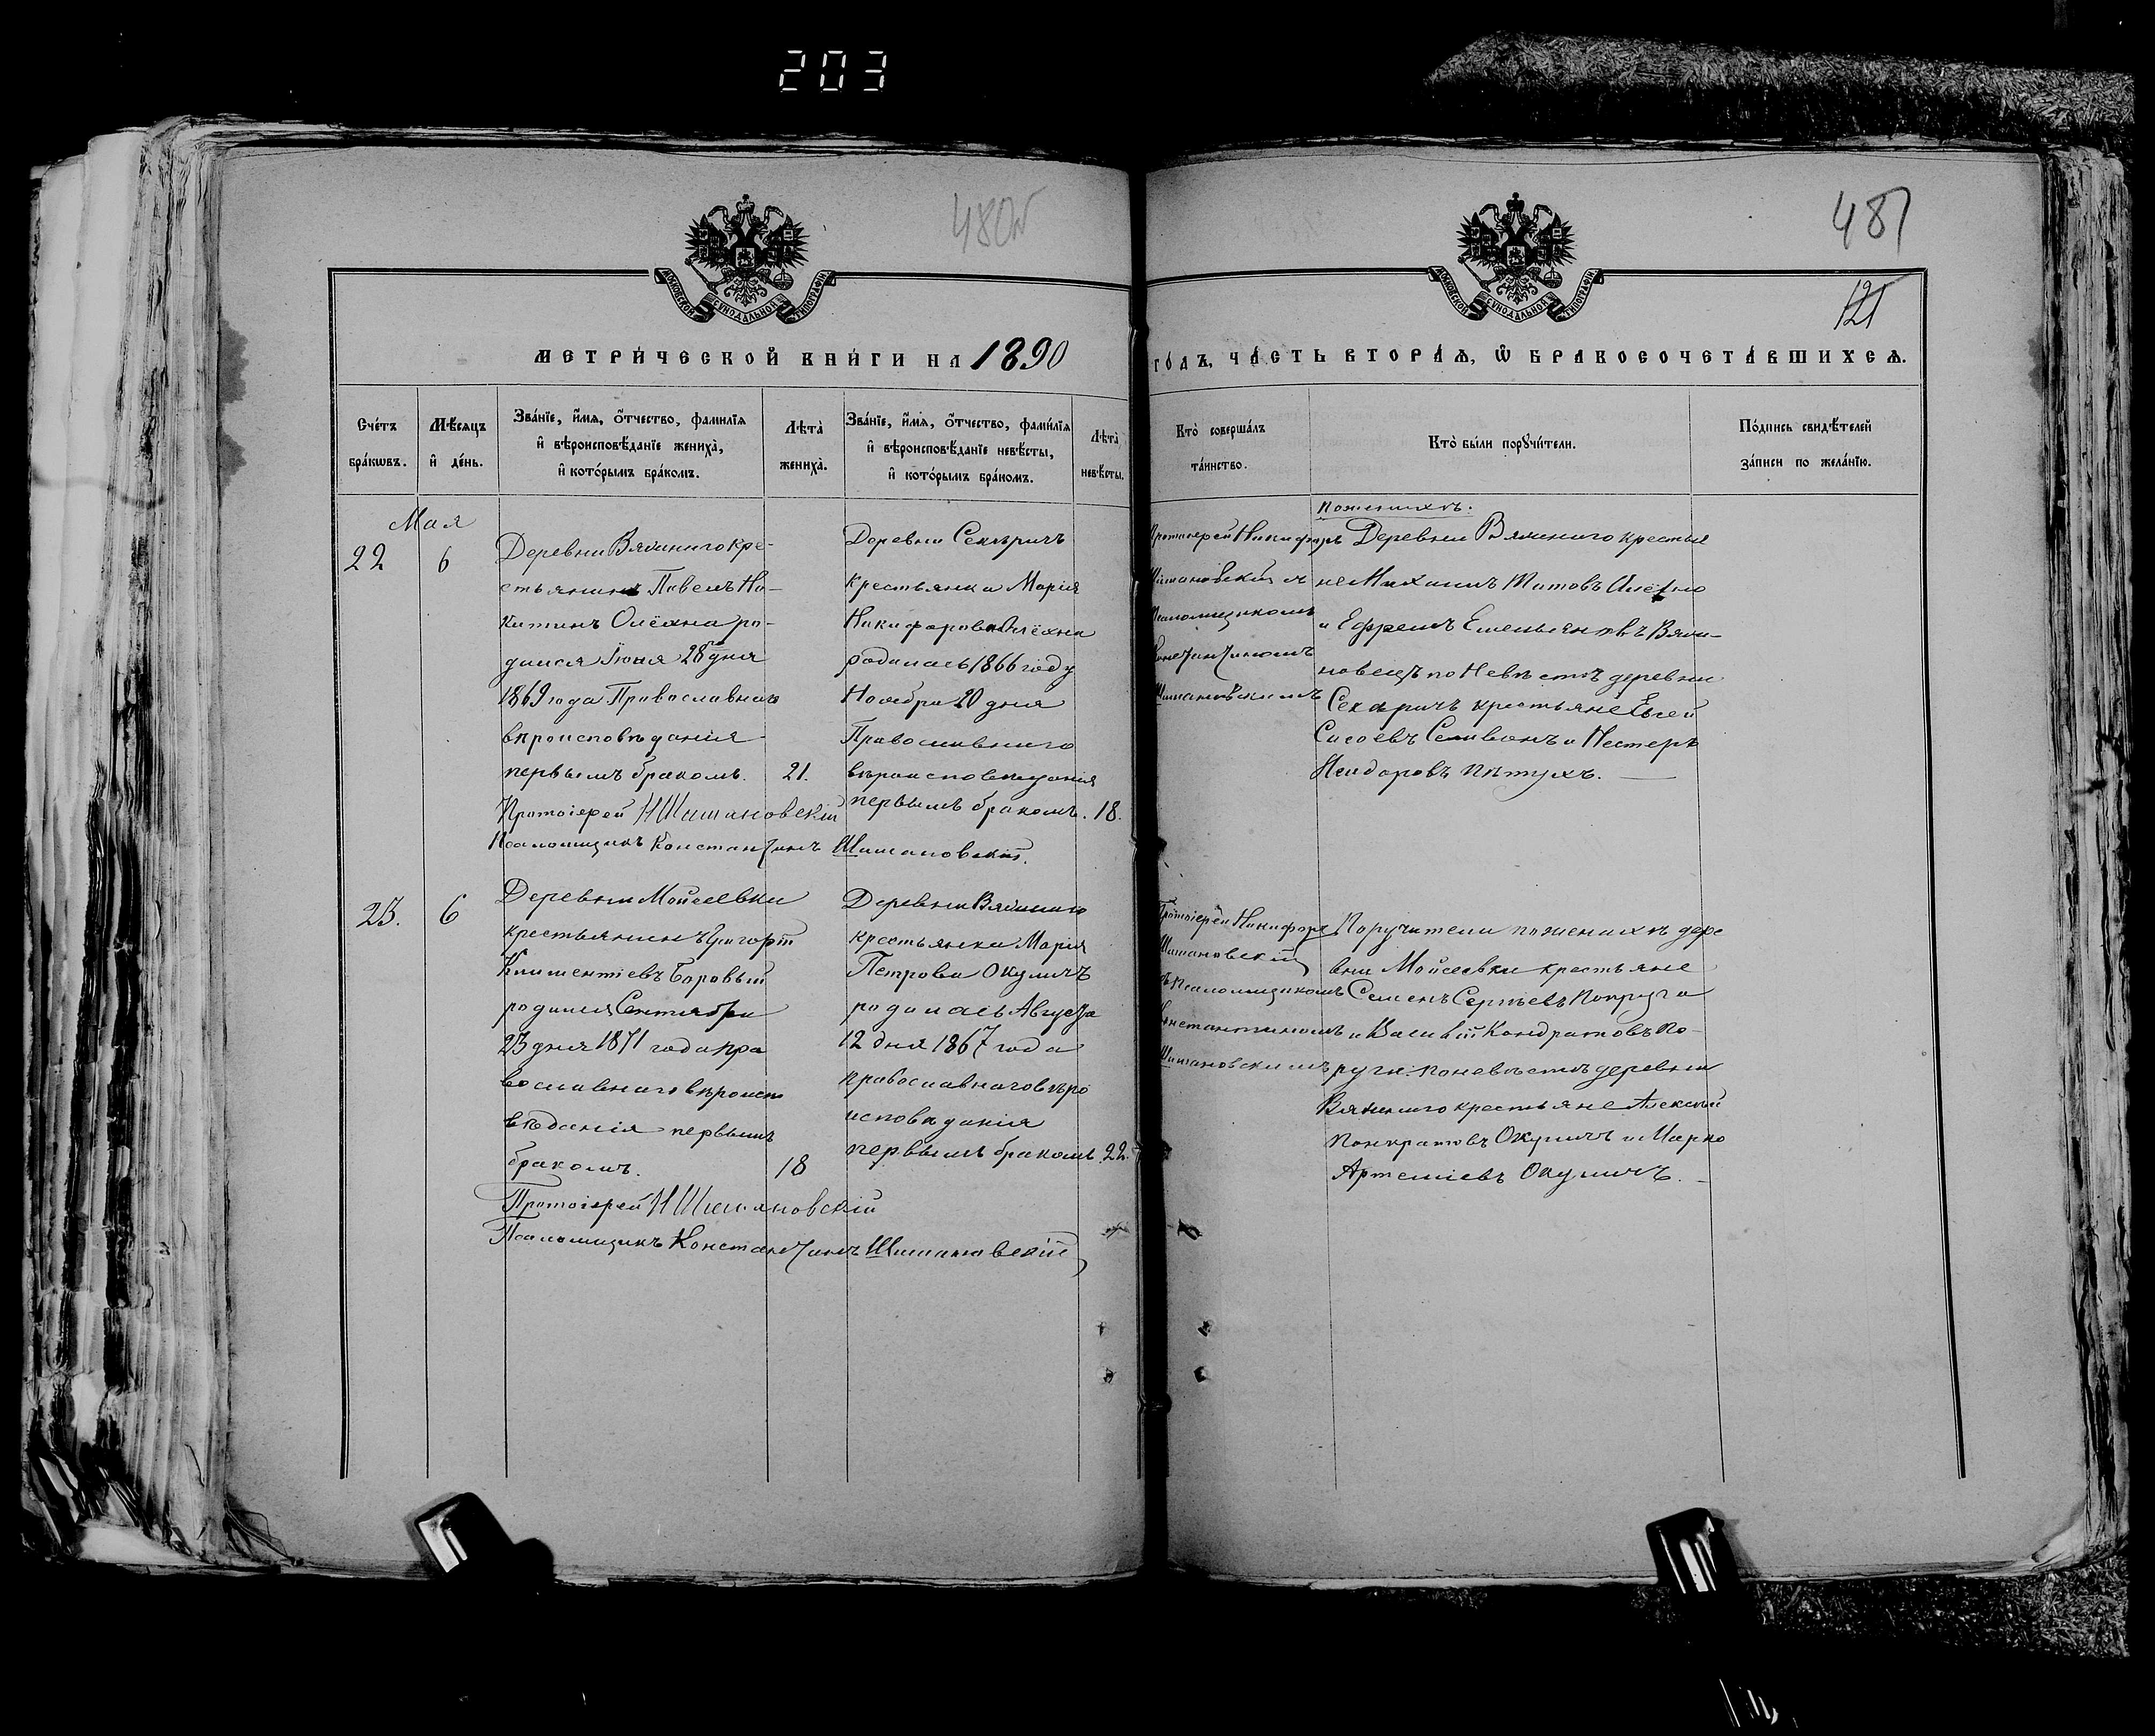 203
480об
481
121
МОСКОВСКОЙ СѴНОДАЛЬНОЙ ТИПОГРАФІИ
МОСКОВСКОЙ СѴНОДАЛЬНОЙ ТИПОГРАФІИ
МЕТРИ́ЧЕСКОЙ КНИ́ГИ НА 1890
ГО́ДЪ, ЧА́СТЬ ВТОРА́Ѧ, Ѡ҆ БРАКОСОЧЕТА́ВШИХСѦ.
Сче́тъ
бра́кѡвъ.
Мѣ́сяцъ
и҆ де́нь.
Зва́нїе, и҆́мѧ, ѻ҆́тчество, фамилїѧ
и҆ вѣроисповѣ́данїе жениха̀,
и҆ кото́рымъ бра́комъ.
Лѣ́та̀
жениха̀.
Зва́нїе, и҆́мѧ, ѻ҆́тчество, фами́лїѧ
и҆ вѣроисповѣ́данїе невѣ́сты,
и҆ кото́рымъ бра́комъ.
Лѣ́та̀
невѣ́сты.
Кто̀ соверша́лъ
та́инство.
Кто̀ бы́ли порꙋчи́тели.
По́дпись свидѣ́телей
за́писи по жела́нїю.
Мая
22
6
Деревни Вяжнаго кре-
стьянинъ Павелъ Ни-
китинъ Олёхна ро-
дился Іюня 28 дня
1869 года Православнаго
вѣроисповѣданія
первымъ бракомъ.
21.
Протоіерей Н Шимановскій
Псаломщикъ Константинъ Шимановскій.
Деревни Секѣричъ
крестьянка Марія
Никифорова Олёхна
родилась 1866 году
Ноября 20 дня
Православнаго
вѣроисповѣданія
первымъ бракомъ.
18.
Протоіерей Никифоръ
Шимановскій съ
Псаломщикомъ
Константиномъ
Шимановскимъ
по женихѣ:
Деревни Вяжнаго крестья
не Михаилъ Титовъ Олёхно
и Ефремъ Емельяновъ Вяжи-
новецъ по Невѣстѣ деревни
Секѣричъ крестьяне Евсей
Сисоевъ Селивонъ и Нестеръ
Исидоровъ Пѣтухъ.
23.
6
Деревни Мойсеевки
крестьянинъ Григорій
Климентіевъ Боровый
родился Сентября
23 дня 1871 года пра
вославнаго вѣроиспо
вѣданія первымъ
бракомъ.
18
Протоіерей Н Шимановскій
Псаломщикъ Константинъ Шимановскій
Деревни Вяжнаго
крестьянка Марія
Петрова Окуличъ
родилась Августа
12 дня 1867 года
православнаго вѣро
исповѣданія
первымъ бракомъ.
22.
Протоіерей Никифоръ
Шимановскій
съ Псаломщикомъ
Константиномъ
Шимановскимъ
Поручители по женихѣ дере
вни Мойсеевки крестьяне
Семенъ Сергѣевъ Попруга
и Василій Кондратовъ По-
руга. по невѣстѣ деревни
Вяжнаго крестьяне Алексѣй
Панкратовъ Окуличъ и Марко
Артеміевъ Окуличъ.